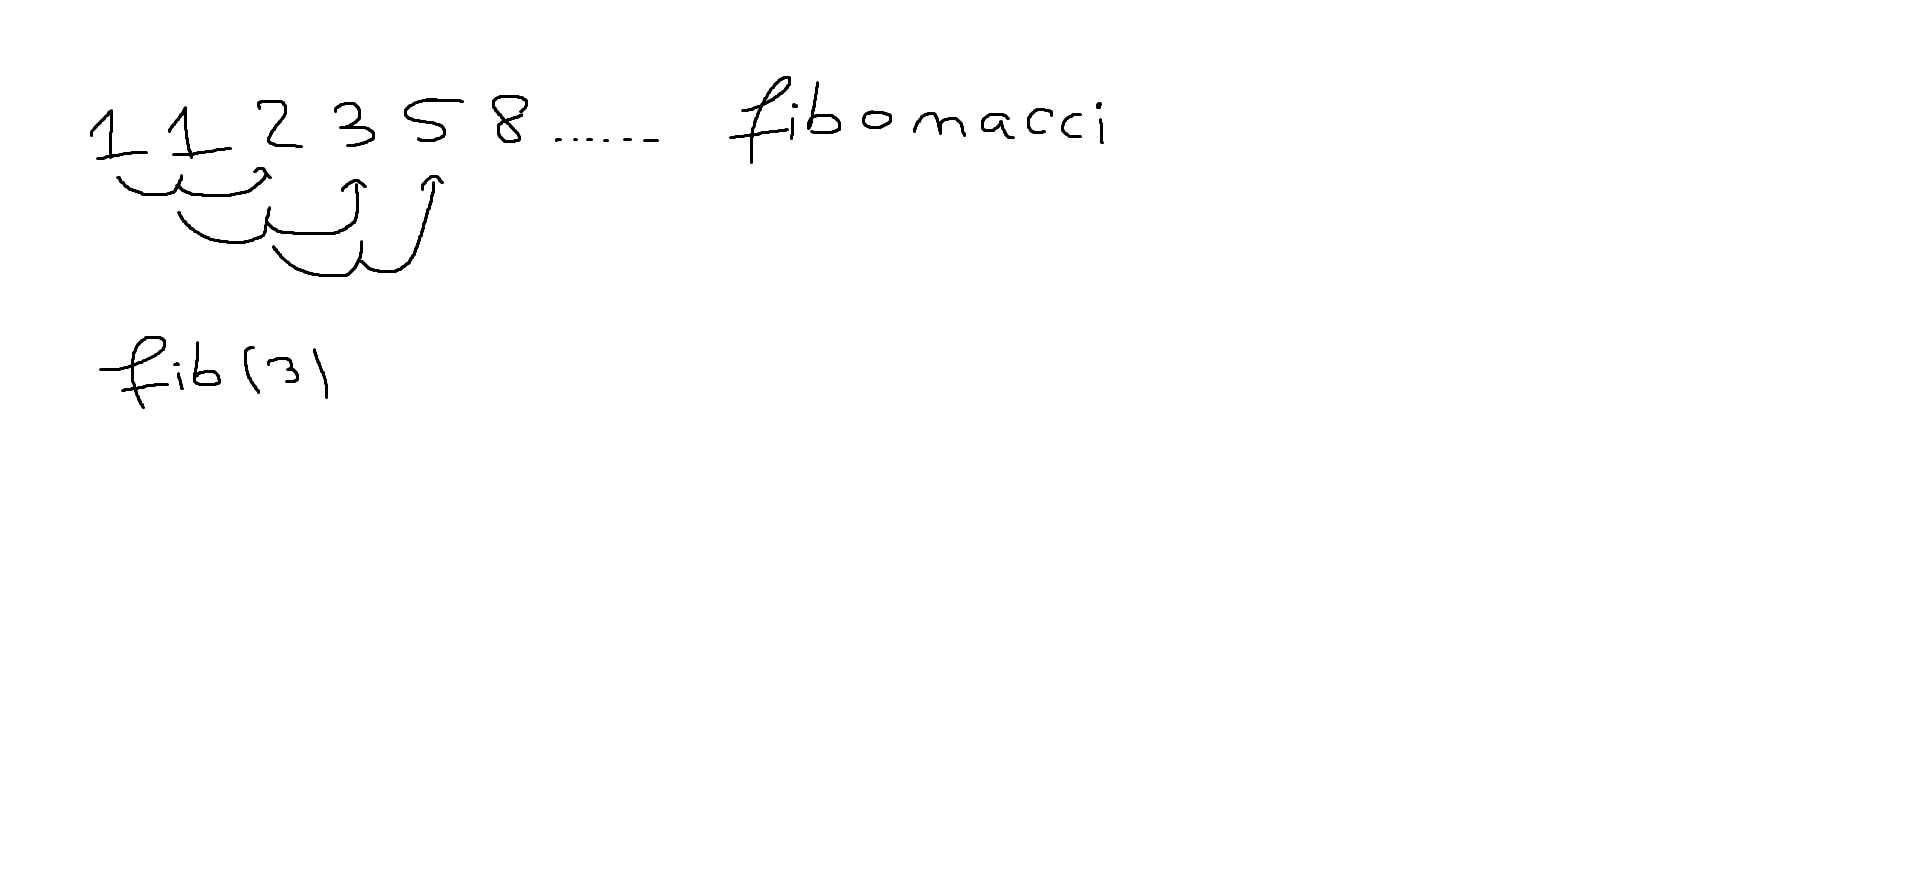 1 1 2 3 5 8 ...... fibonacci
fib(3)